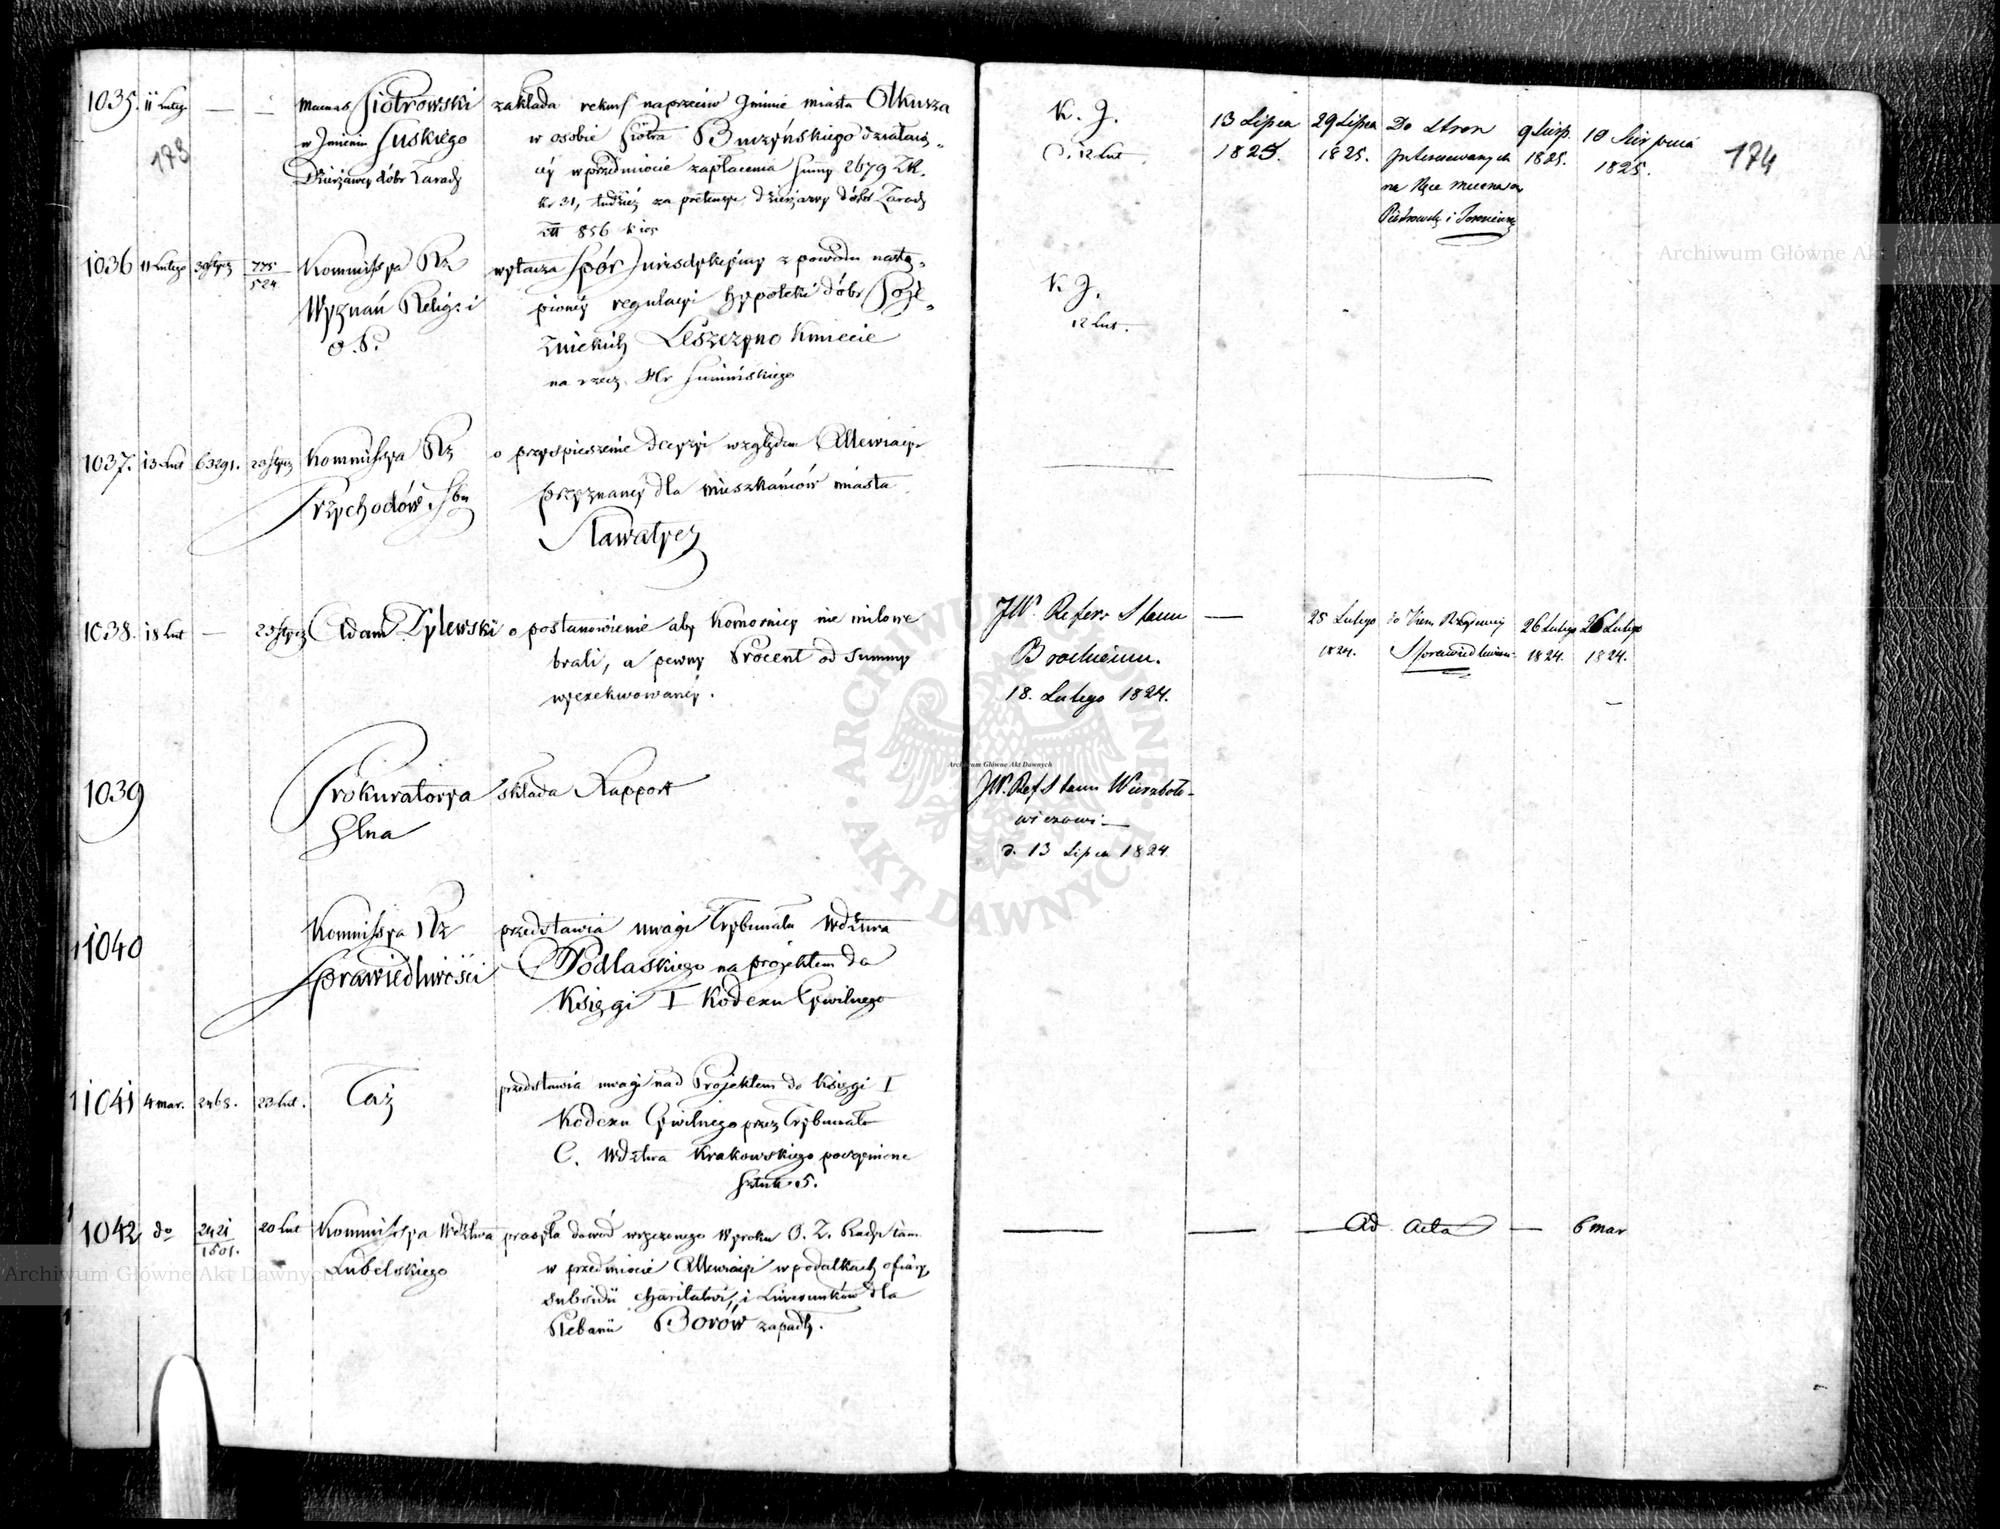 173
1035. 11 Luteg — — Mecenas Piotrowski zakłada rekurs naprzeciw Gminie miasta Olkusza
w Imieniu Suskiego w osobie Piotra Buczyńskiego działaią„
Dzierżawcy dóbr Zarady céy w przedmiocie zapłacenia Summy 2679 Zł.
Gr 31, tudzież za pretensye dzierżawy dóbr Zarady
Zł 856
1036 11 Lutego 30 Stycz 775/524 Kommissya Rz wytacza Spór Jurisdykcyiny z powodu nastą„
Wyznań Relig: i pioney regulacyi hypoteki dóbr
O. P. Leszczyno Kmiecie
na rzecz Hr Sumińskiego
1037. 13 Lut 63291. 20 Stycz Kommissya Rz o przyspieszenie decyzyi względem Allewiacyi
Przychodów i Sku przyznaney dla mieszkańców miasta
Sławatycz
1038. 18 Lut — 25 Stycz Adam Dylewski o postanowienie aby Komornicy nie milowe
brali, a pewny Procent od Summy
wyexekwowaney.
1039 Prokuratorya składa Rapport
Glna
1040 Kommissya Rz przedstawia uwagi Trybunału Wdztwa
Sprawiedliwości Podlaskiego na projektem do
Księgi I Kodexu Cywilnego
1041 4 mar. 2465. 23 Lut. Taż przedstawia uwagi nad Projektem do Księgi I
Kodexu Cywilnego przez Trybunał
C. Wdztwa Krakowskiego poczynione
Sztuk 5.
1042 do 2421/1501. 20 Lut Kommissya Wdztwa przesyła dowód wręczonego Wyroku O. Z. Rady Stanu
Lubelskiego w przedmiocie Allewiacyi w podatkach ofiary,
Subsidii Charitativi, i Liwerunków dla
Plebanii Borów zapadły.
174
K. J. 13 Lipca 29 Lipca Do Stron 9 Sierp. 10 Sierpnia
d. 12 Lut 1825. 1825. Interesowanych 1825. 1825.
na Ręce Mecenasa
Piotrowsk i
K J.
12 Lut.
JW. Refer. Stanu — 25 Lutego do Kom Rządowey 26 Lutego 26 Lutego
Brockiemu. 1824. Sprawiedliwości 1824. 1824.
18. Lutego 1824.
JW. Ref Stanu Wierzboło-
wiczowi —
d. 13 Lipca 1824
— — — Ad Acta — 6 mar
Archiwum Główne Akt Dawnych
Archiwum Główne Akt Dawnych
Archiwum Główne Akt Dawnych
ARCHIWUM GŁÓWNE AKT DAWNYCH